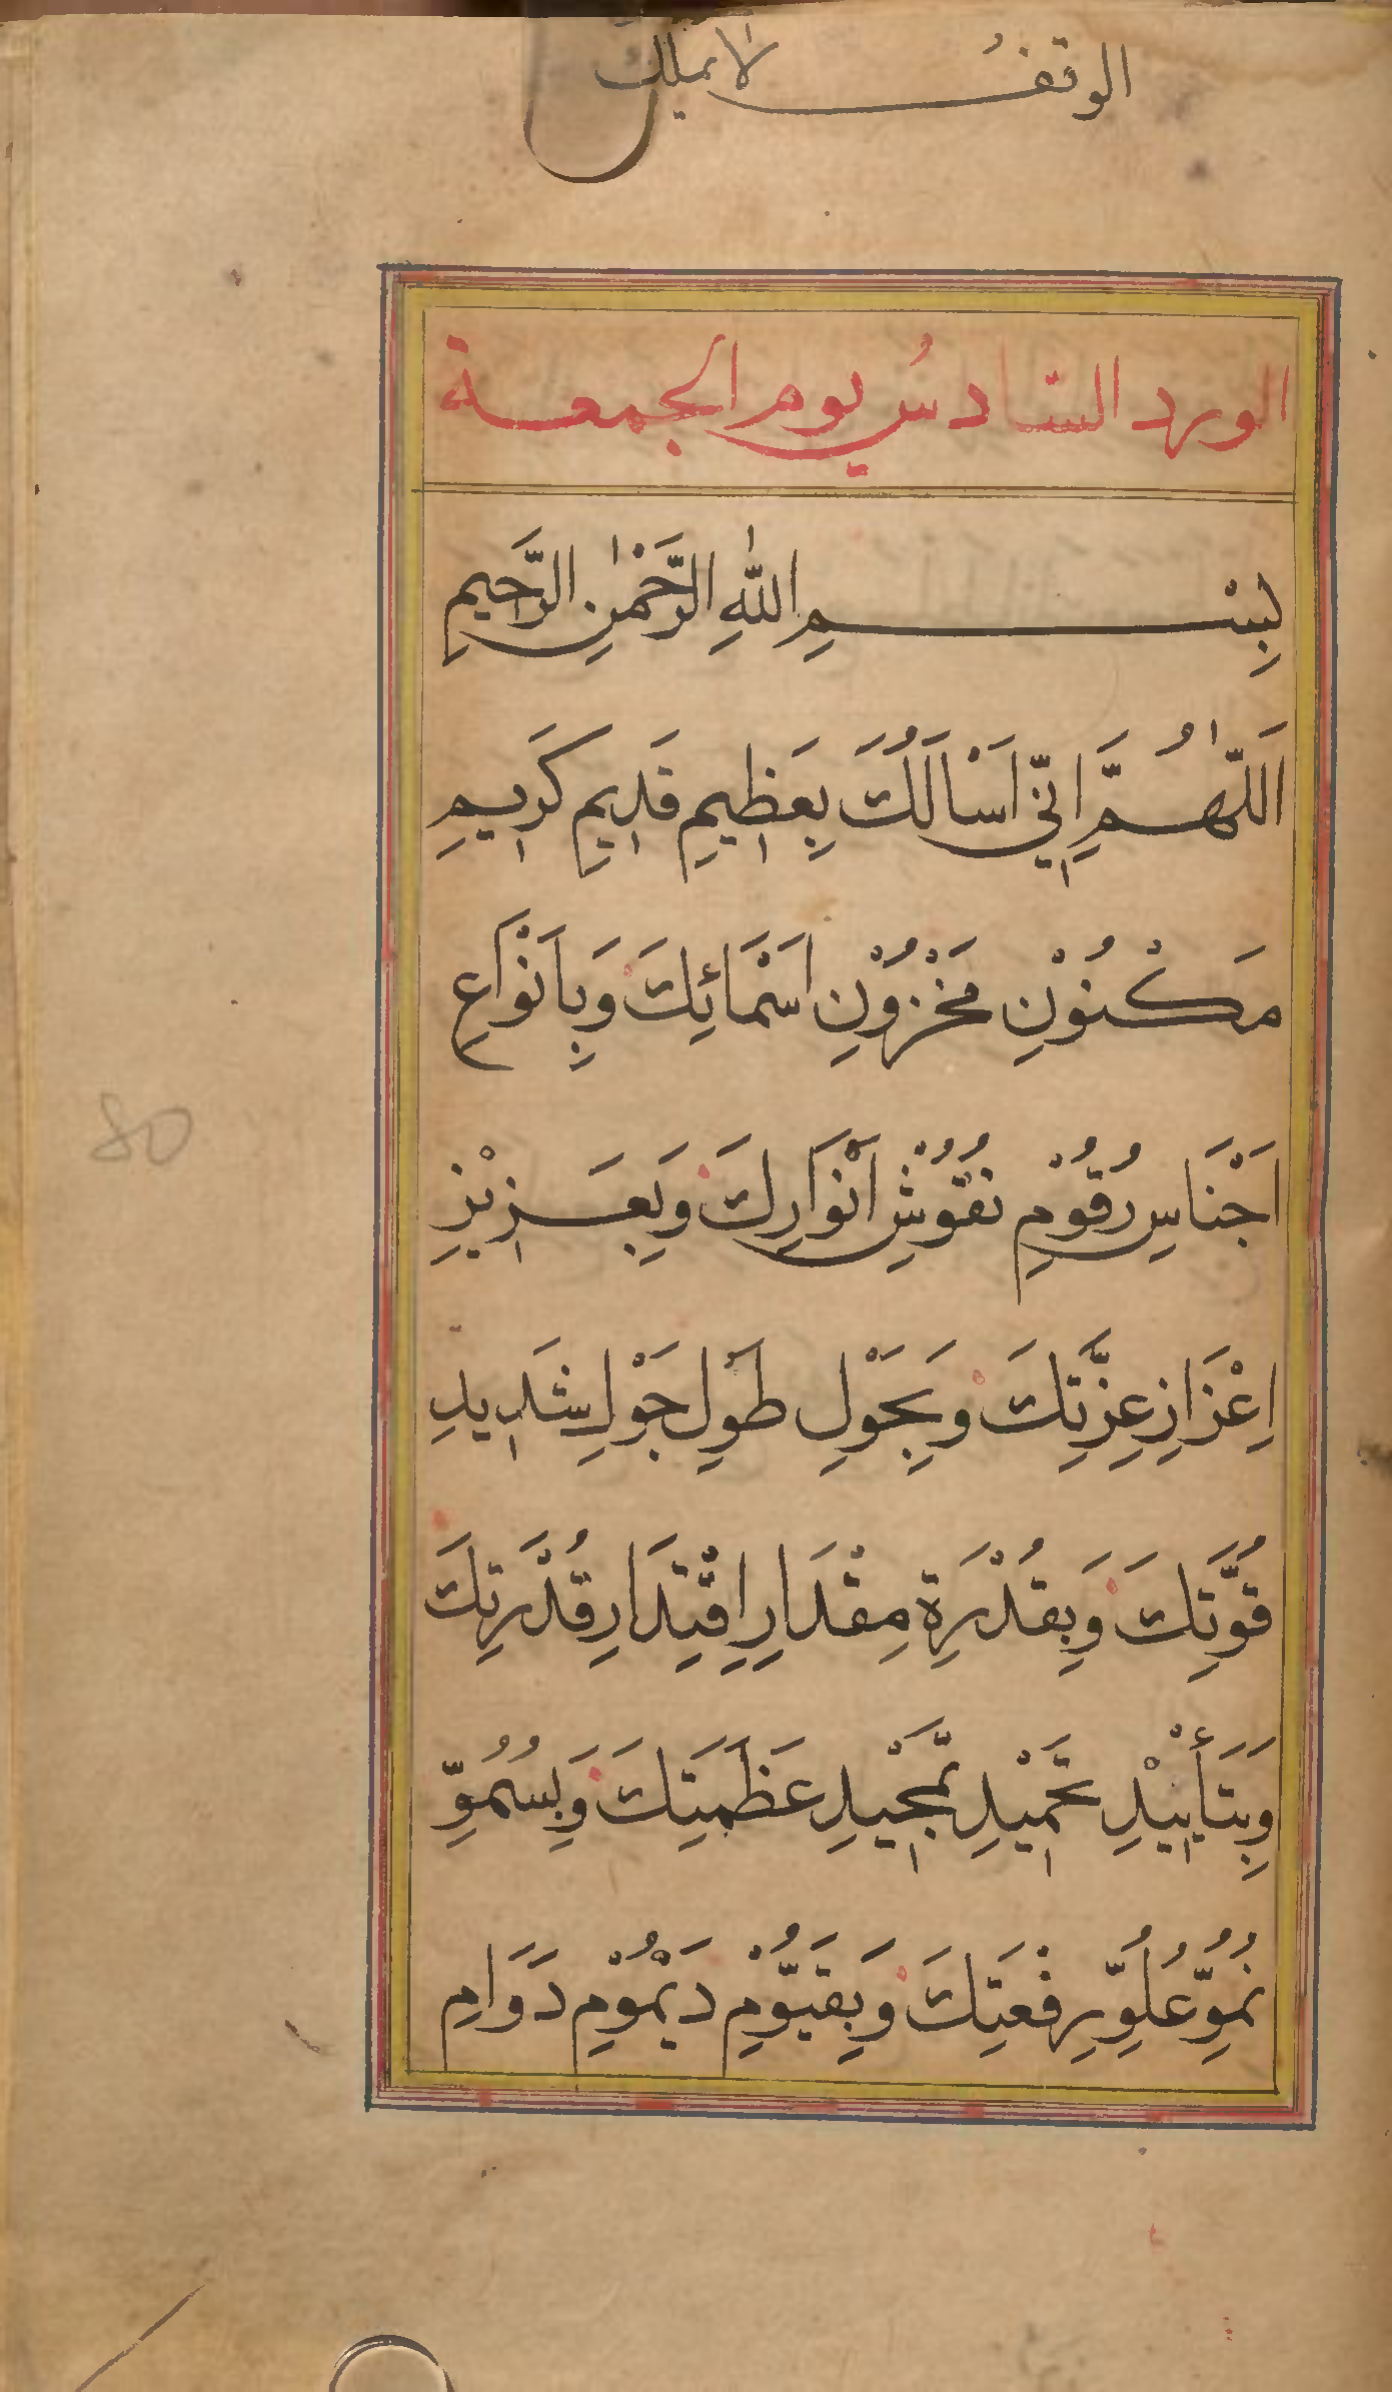 الوقف لا يملك
الورد السادسُ يوم الجمعة
بِسْمِ اللّٰهِ الرَّحْمٰنِ الرَّحِيمِ
اَللّٰهُمَّ اِنِّي اَسْاَلُكَ بِعَظِيمِ قَدِيمِ كَرِيمِ
مَكْنُوْنِ مَخْزُوْنِ اَسْمَائِكَ وَبِاَنْوَاعِ
اَجْنَاسِ رُقُوْمِ نُقُوْشِ اَنْوَارِكَ وَبِعَزِيْزِ
اِعْزَازِ عِزَّتِكَ وَبِحَوْلِ طَوْلِ جَوْلِ شَدِيدِ
قُوَّتِكَ وَبِقُدْرَةِ مِقْدَارِ اِقْتِدَارِ قُدْرَتِكَ
وَبِتَأْيِيْدِ تَحْمِيْدِ تَمْجِيْدِ عَظَمَتِكَ وَبِسُمُوِّ
نُمُوِّ عُلُوِّ رِفْعَتِكَ وَبِقَيُّوْمِ دَيْمُوْمِ دَوَامِ
80